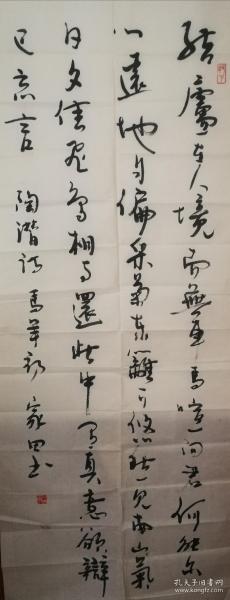 結廬在人境而無車馬喧問君何能尔
心遠地自偏采菊东籬下悠然見南山氣
日夕佳飛鳥相与還此中有真意欲辯
已忘言 陶潛詩 馬年初 家田书
孔夫子旧书网